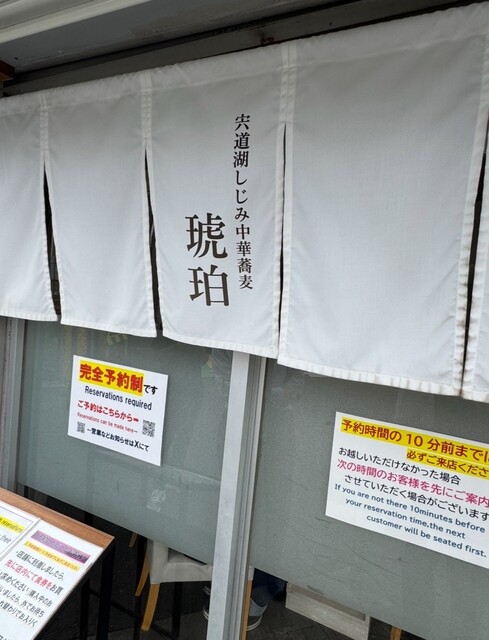 宍道湖しじみ中華蕎麦
琥珀
完全予約制です
Reservations required
ご予約はこちらから
Reservations can be made here
営業などお知らせはXにて
予約時間の10分前までに
必ずご来店くださ
お越しいただけなかった場合
次の時間のお客様を先にご案内
させていただく場合がございます
If you are not there 10minutes before
your reservation time,the next
customer will be seated first.